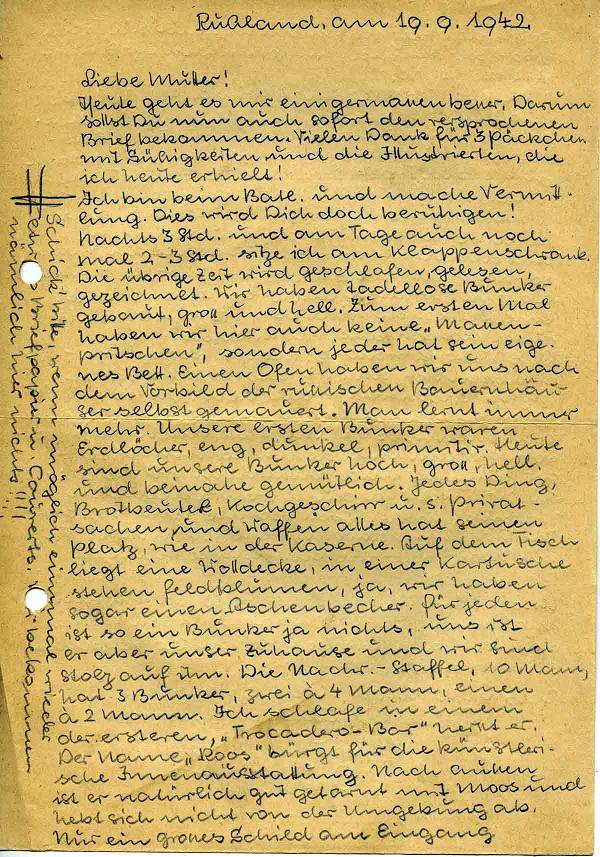 Rußland, am 19.9.1942
Liebe Mutter!
Heute geht es mir einigermaßen besser. Darum
sollst Du nun auch sofort den versprochenen
Brief bekommen. Vielen Dank für 3 Päckchen
mit Süßigkeiten und die Illustrierten, die
ich heute erhielt!
Ich bin beim Batl. und mache Vermitt-
lung. Dies wird Dich doch beruhigen!
Nachts 3 Std. und am Tage auch noch
mal 2-3 Std. sitze ich am Klappenschrank.
Die übrige Zeit wird geschlafen, gelesen,
gezeichnet. Wir haben tadellose Bunker
gebaut, groß und hell. Zum ersten Mal
haben wir hier auch keine „Massen-
pritschen", sondern jeder hat sein eige-
nes Bett. Einen Ofen haben wir uns nach
dem Vorbild der rußischen Bauernhäu-
ser selbst gemauert. Man lernt immer
mehr. Unsere ersten Bunker waren
Erdlöcher, eng, dunkel, primitiv. Heute
sind unsere Bunker hoch, groß, hell.
und beinahe gemütlich. Jedes Ding,
Brotbeutel, Kochgeschirr u. s. Privat-
sachen, und Waffen, alles hat seinen
Platz, wie in der Kaserne. Auf dem Tisch
liegt eine Wolldecke, in einer Kartusche
stehen Feldblumen, ja, wir haben
sogar einen Aschenbecher. Für jeden
ist so ein Bunker ja nichts, uns ist
er aber unser Zuhause und wir sind
stolz auf ihn. Die Nachr.-Staffel, 10 Mann,
hat 3 Bunker, zwei à 4 Mann, einen
à 2 Mann. Ich schlafe in einem
der ersteren, „Trocadero-Bar" heißt er.
Der Name „Roos" bürgt für die künstleri-
sche Innenausstattung. Nach außen
ist er natürlich gut getarnt mit Moos und
hebt sich nicht von der Umgebung ab.
Nur ein großes Schild am Eingang
Schick' bitte, wenn möglich einmal wieder
Briefpapier u. Couverts. bekommen
nämlich hier nichts!!!!